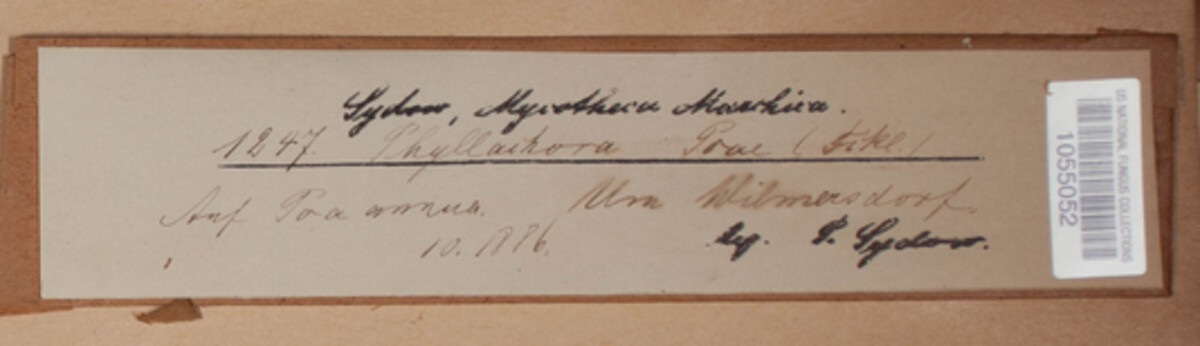 Sydow, Mycotheca Marchica.
1247. Phyllachora Poae (Fckl.)
Auf Poa annua. Um Wilmersdorf.
10. 1886. leg. P. Sydow.
US NATIONAL FUNGUS COLLECTIONS
1055052